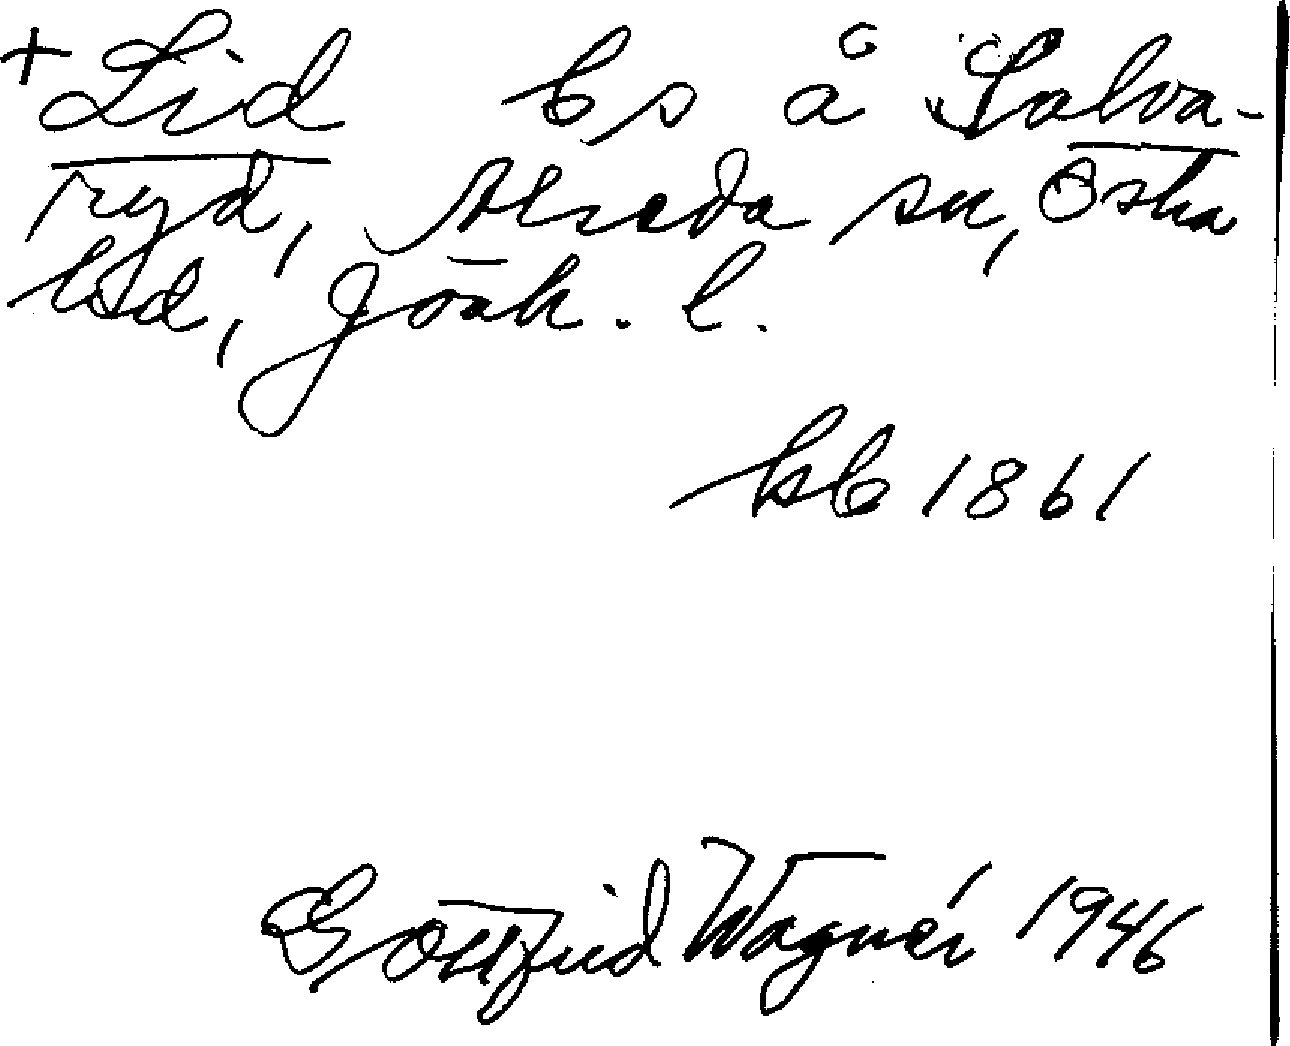 + Lid bs å Salva-
ryd, Alseda sn, Östra
hd, Jönk. l.
hfl 1861
Gottfrid Wagnér 1946